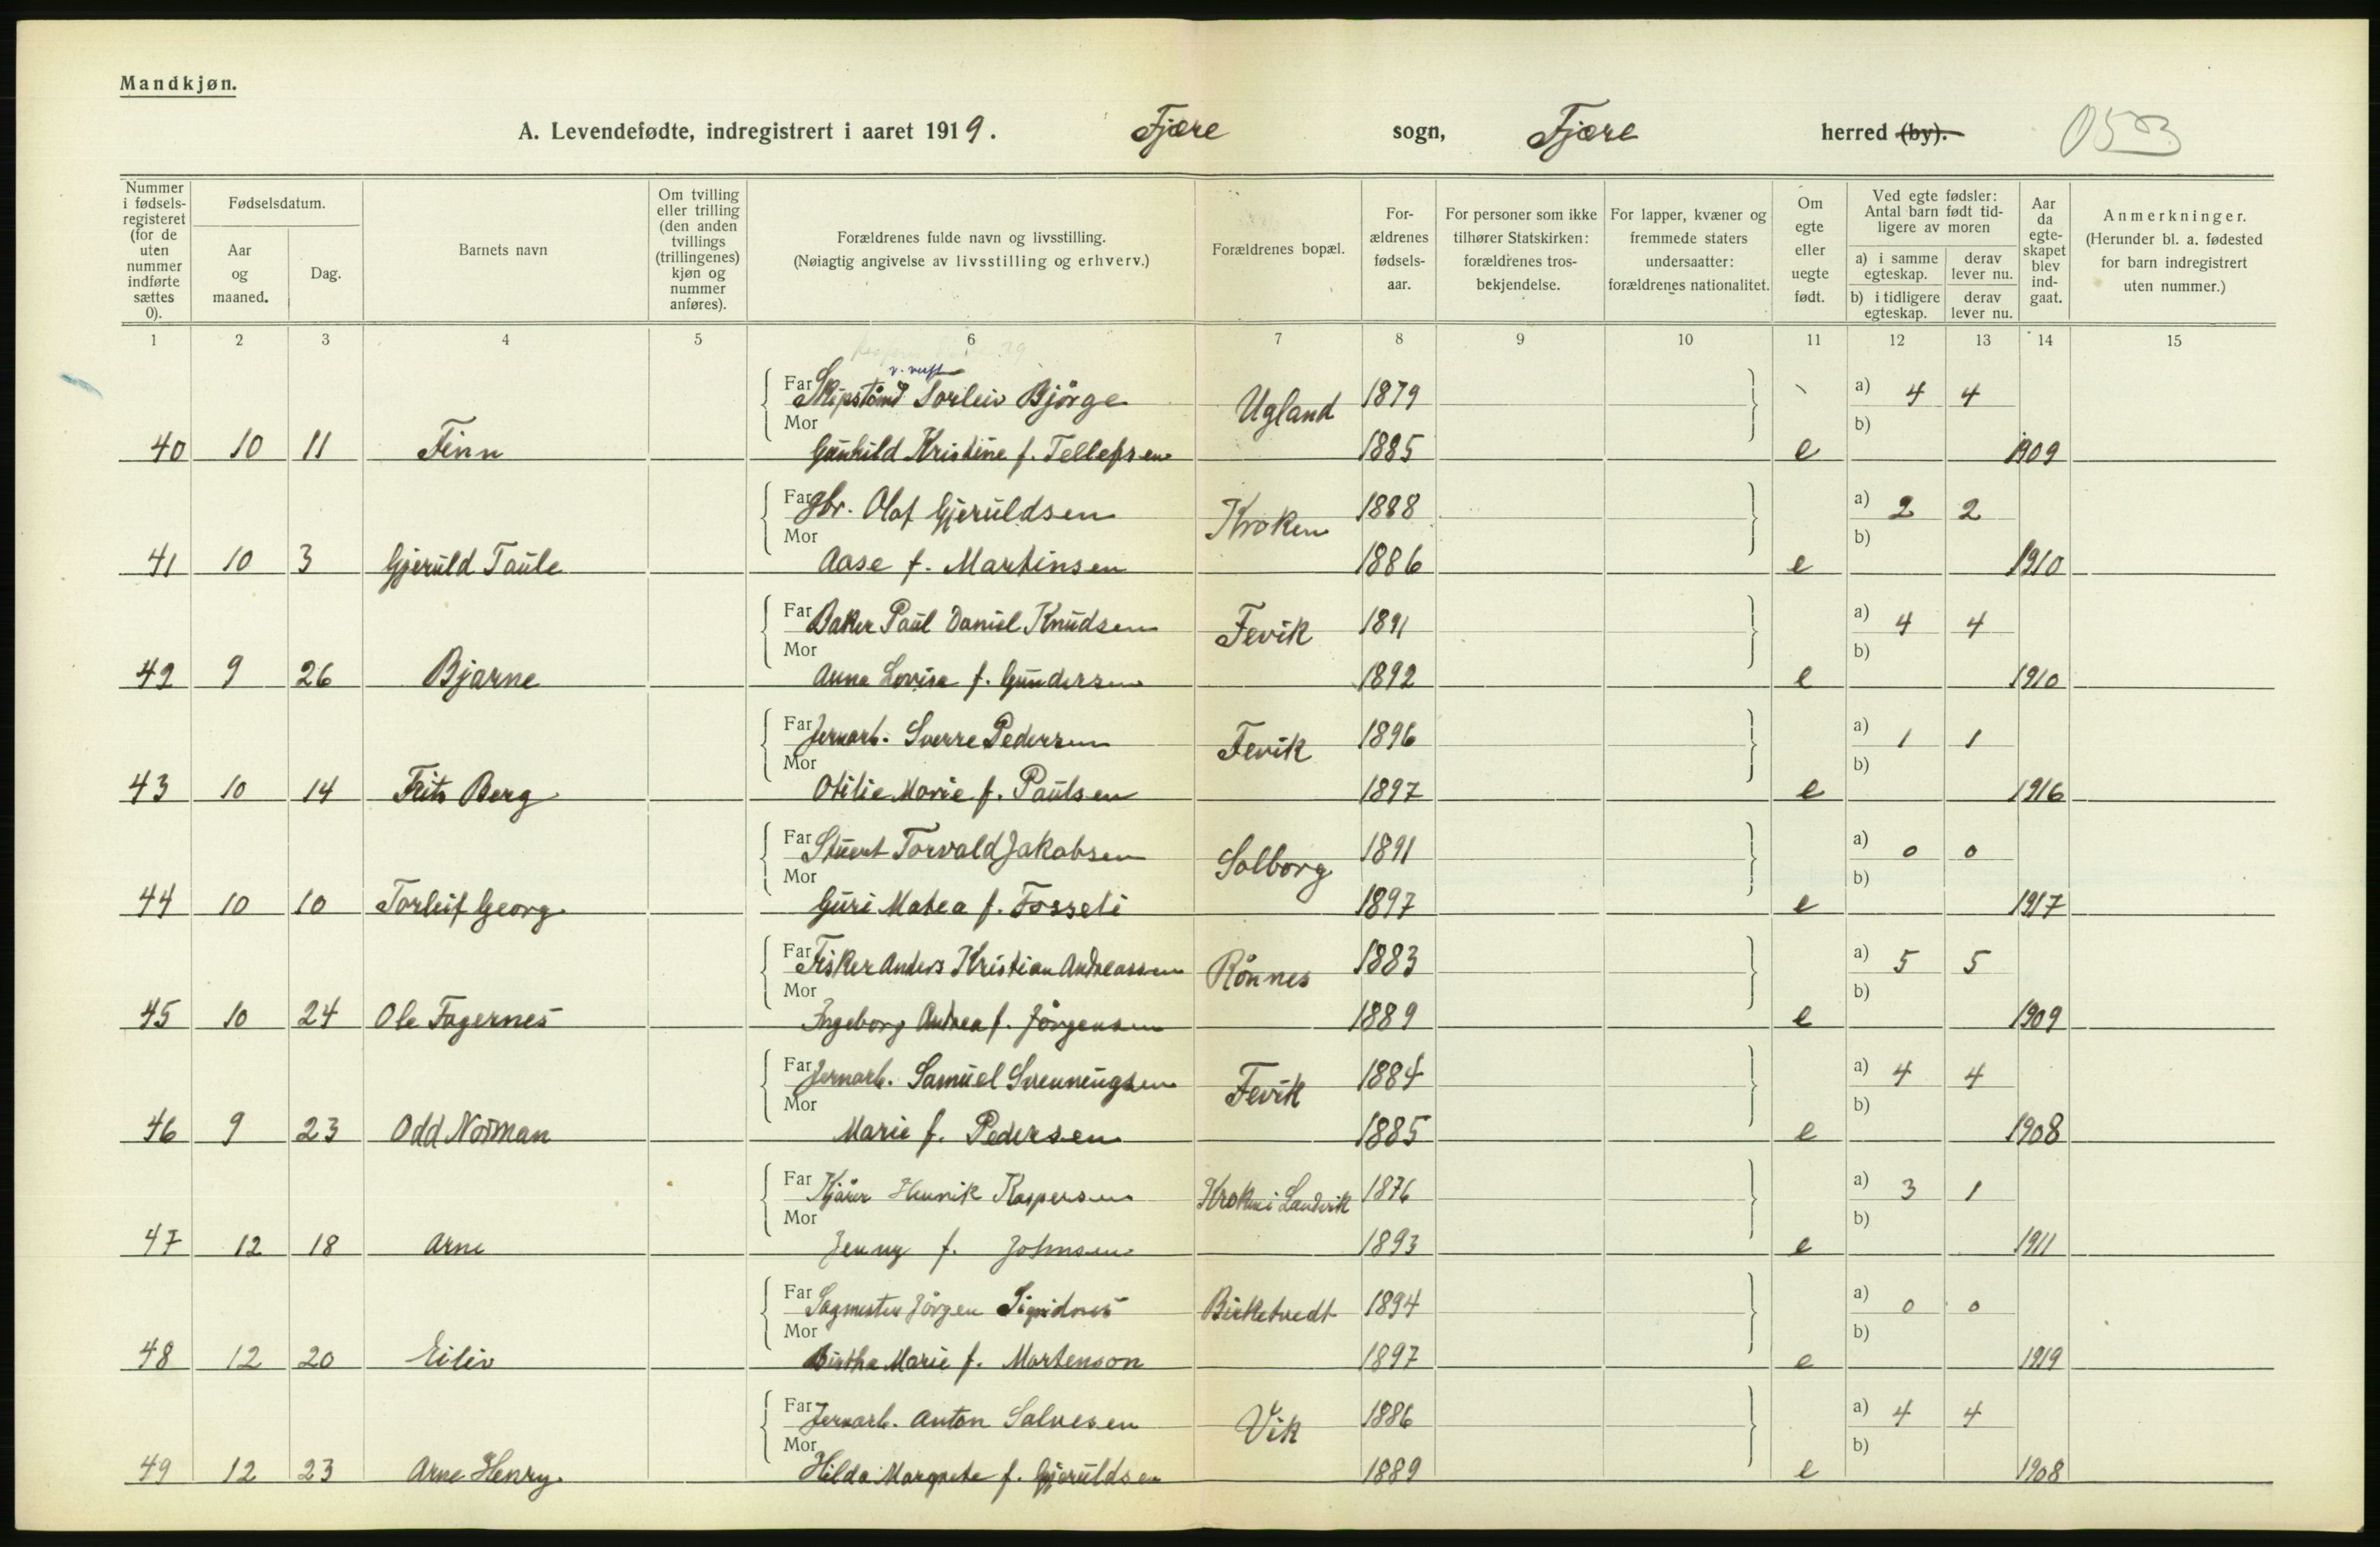 Mandkjøn.
A. Levendefødte, indregistrert i aaret 1919. Fjære sogn, Fjære herred (by).
Nummer i fødsels-registeret (for de uten nummer indførte sættes 0).
Fødselsdatum.
Aar og maaned.
Dag.
Barnets navn
Om tvilling eller trilling (den anden tvillings (trillingenes) kjøn og nummer anføres).
Forældrenes fulde navn og livsstilling.
(Nøiagtig angivelse av livsstilling og erhverv.)
Forældrenes bopæl.
For-ældrenes fødsels-aar.
For personer som ikke tilhører Statskirken: forældrenes tros-bekjendelse.
For lapper, kvæner og fremmede staters undersaatter: forældrenes nationalitet.
Om egte eller uegte født.
Ved egte fødsler: Antal barn født tid-ligere av moren
a) i samme egteskap. derav lever nu.
b) i tidligere egteskap. derav lever nu.
Aar da egte-skapet blev ind-gaat.
Anmerkninger.
(Herunder bl. a. fødested for barn indregistrert uten nummer.)
1 2 3 4 5 6 7 8 9 10 11 12 13 14 15
Far Skipstømd Torleiv Bjørge Ugland 1879 a) 4 4
Mor b)
40 10 11 Finn Gunhild Kristine f. Tellefsen 1885 e 1909
Far Gbr. Olaf Gjeruldsen Kroken 1888 a) 2 2
Mor b)
41 10 3 Gjeruld Taule Aase f. Martinsen 1886 e 1910
Far Baker Paul Daniel Knudsen Fevik 1891 a) 4 4
Mor b)
42 9 26 Bjarne Anna Lovise f. Gundersen 1892 e 1910
Far Jernarb. Sverre Pedersen Fevik 1896 a) 1 1
Mor b)
43 10 14 Frits Berg Otilie Marie f. Paulsen 1897 e 1916
Far Stuert Torvald Jakobsen Solborg 1891 a) 0 0
Mor b)
44 10 10 Torleif Georg Guri Matea f. Fosseli 1897 e 1917
Far Fisker Anders Kristian Andreassen Rønnes 1883 a) 5 5
Mor b)
45 10 24 Ole Fagernes Ingeborg Andrea f. Jørgensen 1889 e 1909
Far Jernarb. Samuel Svenningsen Fevik 1884 a) 4 4
Mor b)
46 9 23 Odd Norman Marie f. Pedersen 1885 e 1908
Far Kjører Henrik Kaspersen Kroken i Landvik 1876 a) 3 1
Mor b)
47 12 18 Arne Jenny f. Johnsen 1893 e 1911
Far Sagmester Jörgen Birketvedt 1894 a) 0 0
Mor b)
48 12 20 Eiliv Birtha Marie f. Mortenson 1897 e 1919
Far Jernarb. Anton Salvesen Vik 1886 a) 4 4
Mor b)
49 12 23 Arne Henry Hilda Margrete f. Gjeruldsen 1889 e 1908